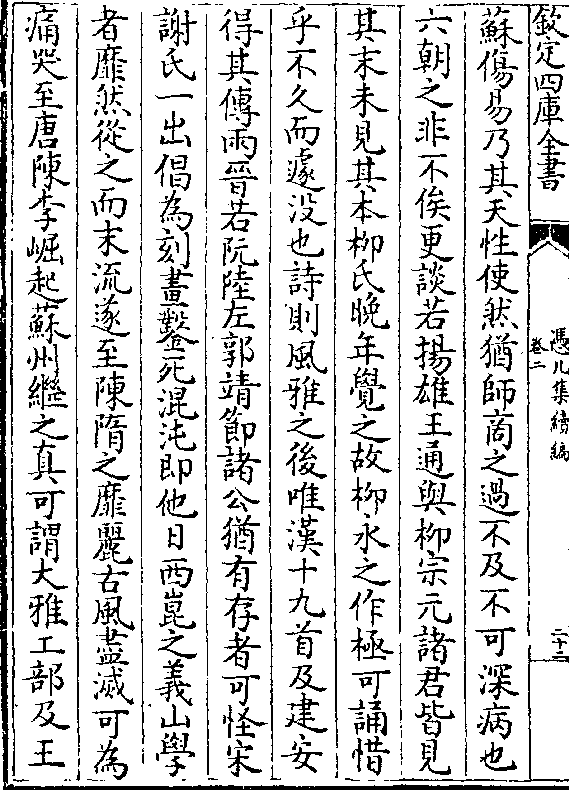 欽定四庫全書
憑几集續編
卷二
二十二
蘇傷易乃其天性使然猶師商之過不及不可深病也
六朝之非不俟更談若揚雄王通與栁宗元諸君皆見
其末未見其本栁氏晚年覺之故栁永之作極可誦惜
乎不久而遽没也詩則風雅之後唯漢十九首及建安
得其傳兩晉若阮陸左郭靖節諸公猶有存者可怪宋
謝氏一出倡為刻畫鑿死混沌即他日西崑之義山學
者靡然從之而末流遂至陳隋之靡麗古風盡滅可為
痛哭至唐陳李崛起蘇州繼之真可謂大雅工部及王